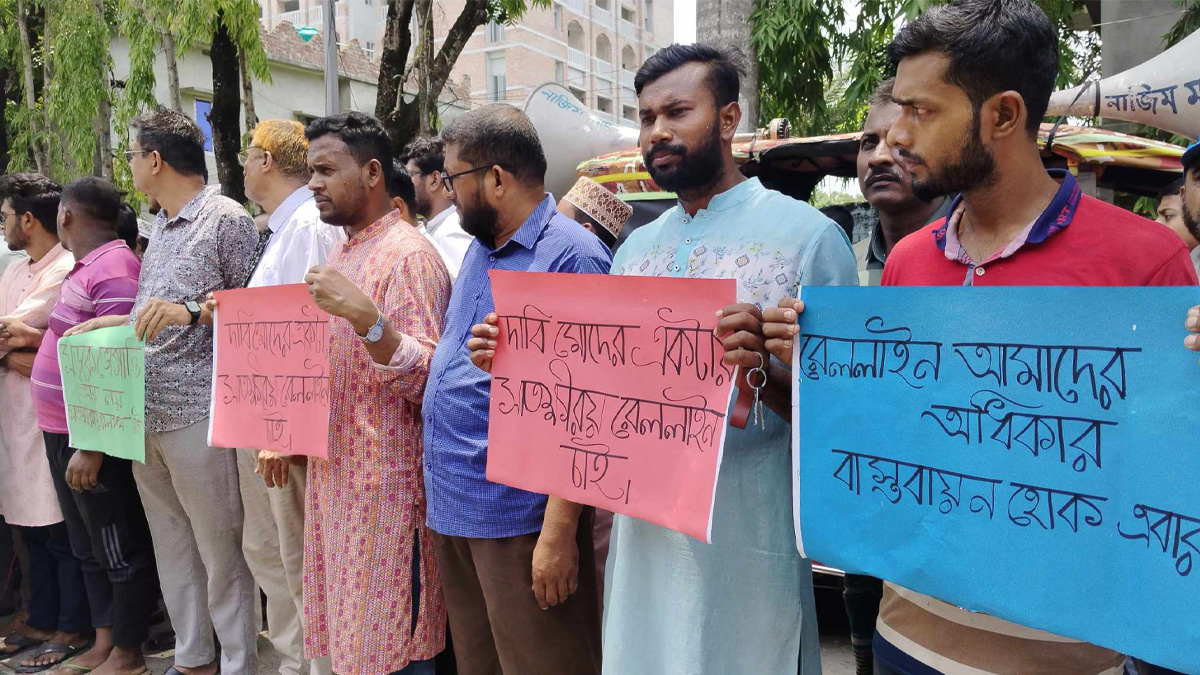 দাবি মোদের একটাই
সাতক্ষীরায় রেললাইন
চাই।
দাবি মোদের একটাই
সাতক্ষীরায় রেললাইন
চাই।
রেললাইন আমাদের
অধিকার
বাস্তবায়ন হোক এবার
নাজিম
নাজিম